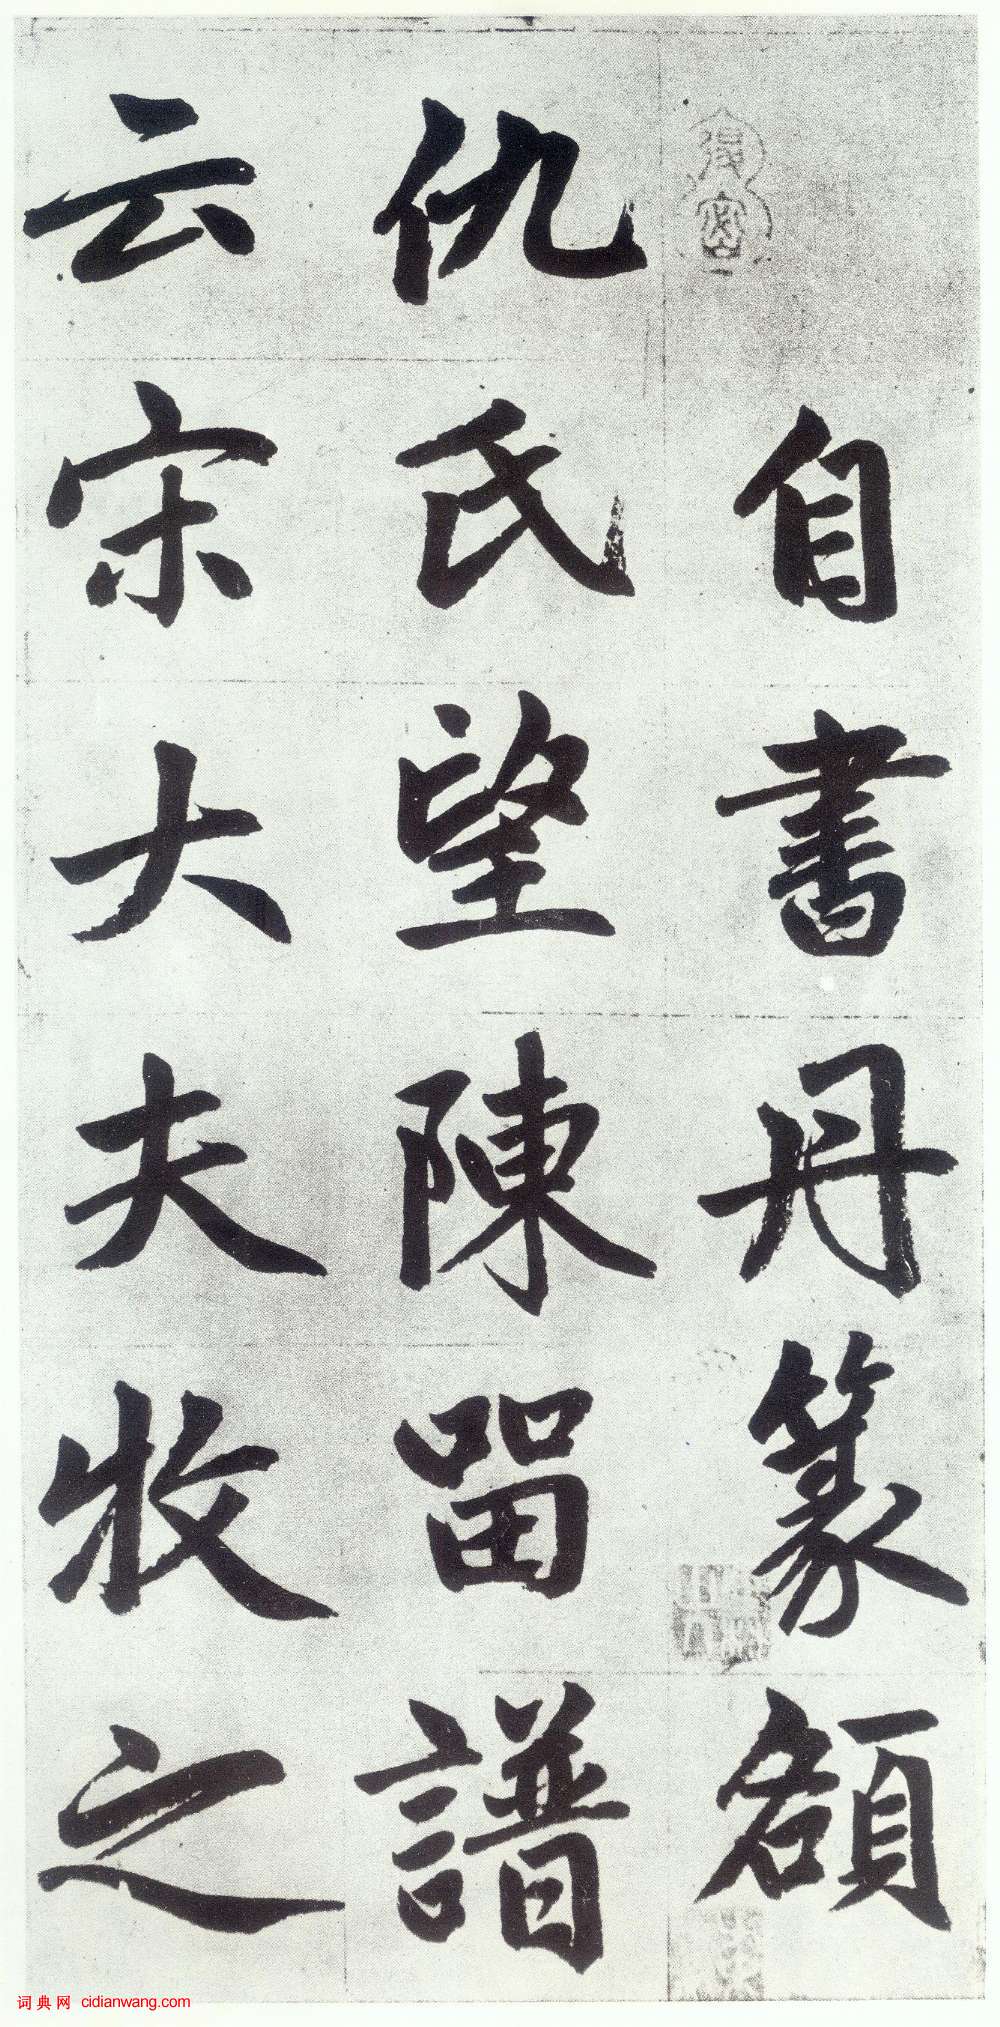 自書丹篆額
仇氏望陳留譜
云宋大夫牧之
词典网 cidianwang.com